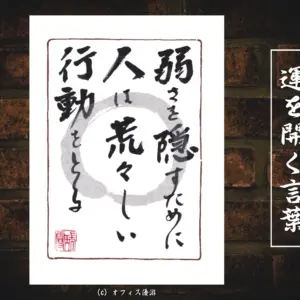 運を開く言葉
弱さを隠すために
人は荒々しい
行動をとる
(c) オフィス海沼